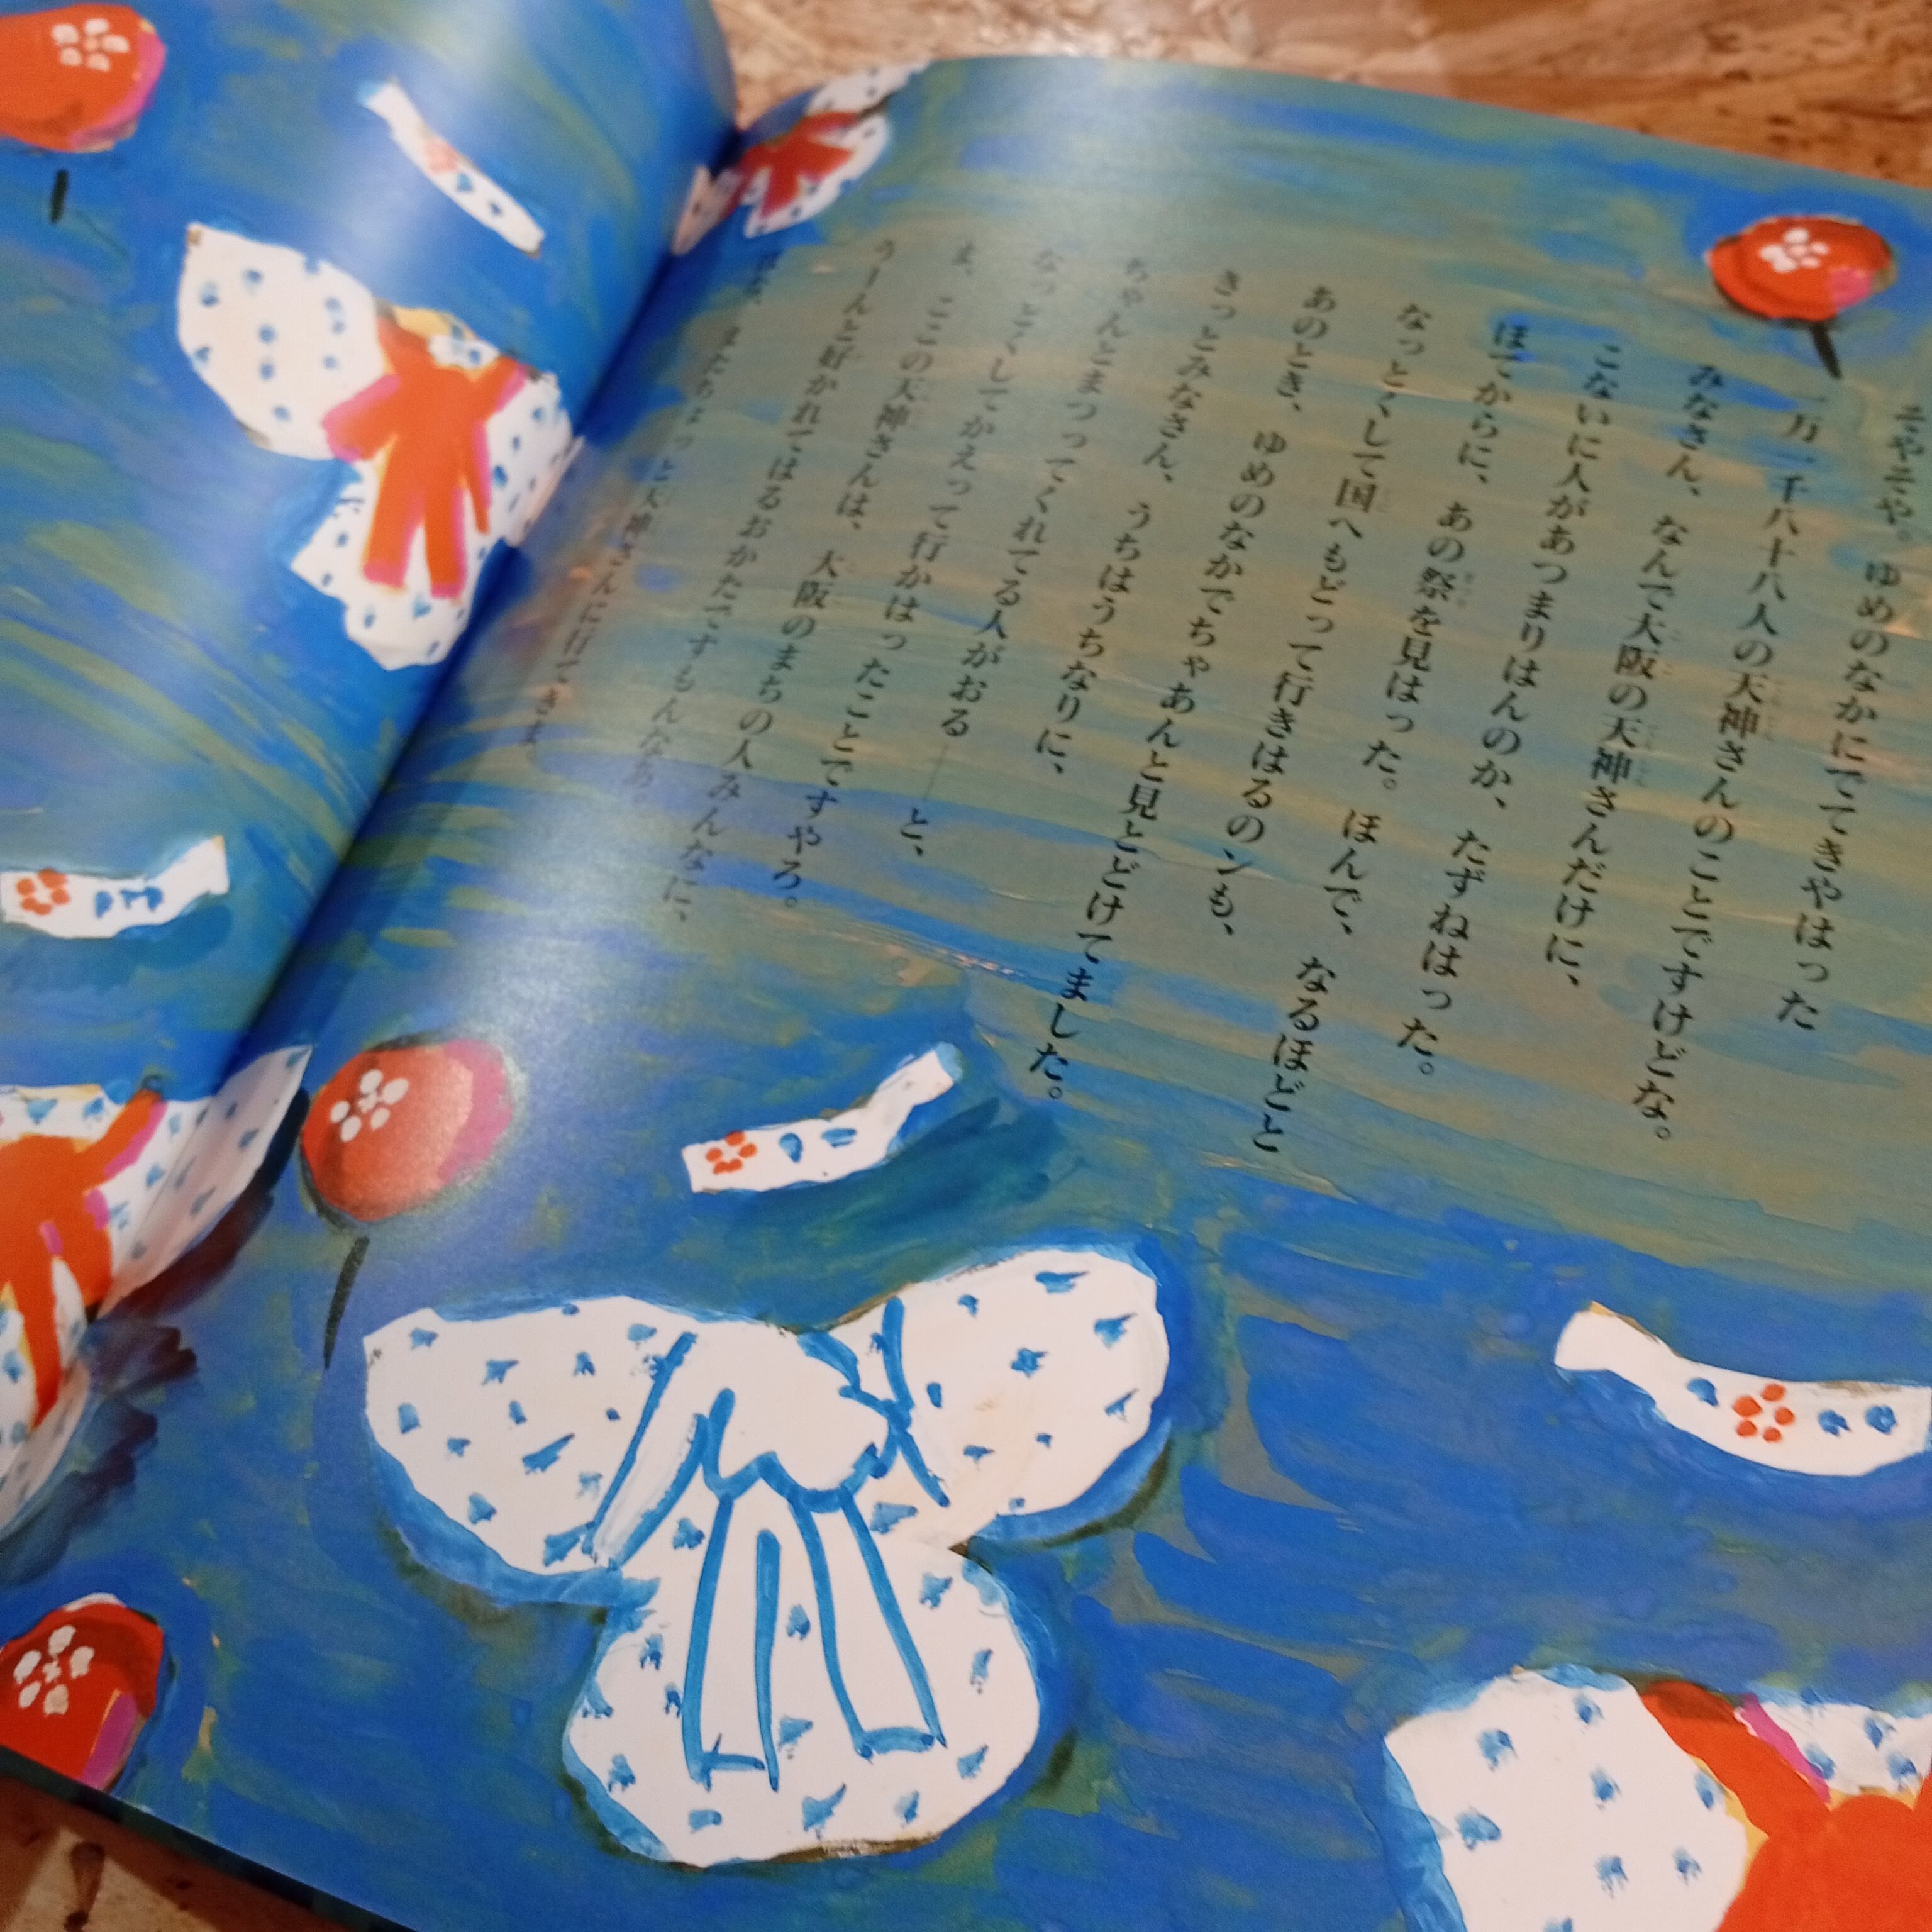 そやそや。ゆめのなかにでてきやはった
一万一千八十八人の天神さんのことですけどな。
みなさん、なんで大阪の天神さんだけに、
こないに人があつまりはんのか、たずねはった。
ほてからに、あの祭を見はった。ほんで、なるほどと
なっとくして国へもどって行きはるのンも、
あのとき、ゆめのなかでちゃあんと見とどけてました。
きっとみなさん、うちはうちなりに、
ちゃんとまつってくれてる人がおる——と、
なっとくしてかえって行かはったことですやろ。
ま、ここの天神さんは、大阪のまちの人みんなに、
うーんと好かれてはるおかたですもんなあ。
またちょっと天神さんに行てきま